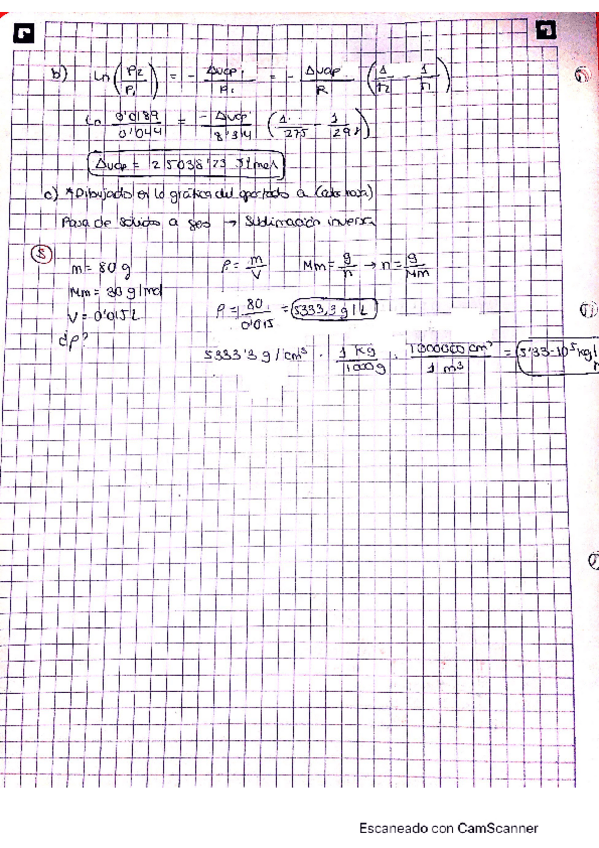 b) Ln (P2/P1) = - Δvap/R = - Δvap/R (1/T2 - 1/T1)
Ln 0'0189/0'044 = -Δvap/8'314 (1/275 - 1/298)
Δvap = 25038'23 J/mol
c) *Dibujado en la gráfica del apartado a (color rojo)
Pasa de sólido a gas → Sublimación inversa
5
m = 80 g ρ = m/V Mm = g/n → n = g/Mm
Mm = 30 g/mol
V = 0'015 L ρ = 80/0'015 = 5333,3 g/L
d ρ?
5333'3 g/cm³ · 1 Kg/1000g · 1000000 cm³/1 m³ = 5'33·10⁵ kg/
Escaneado con CamScanner